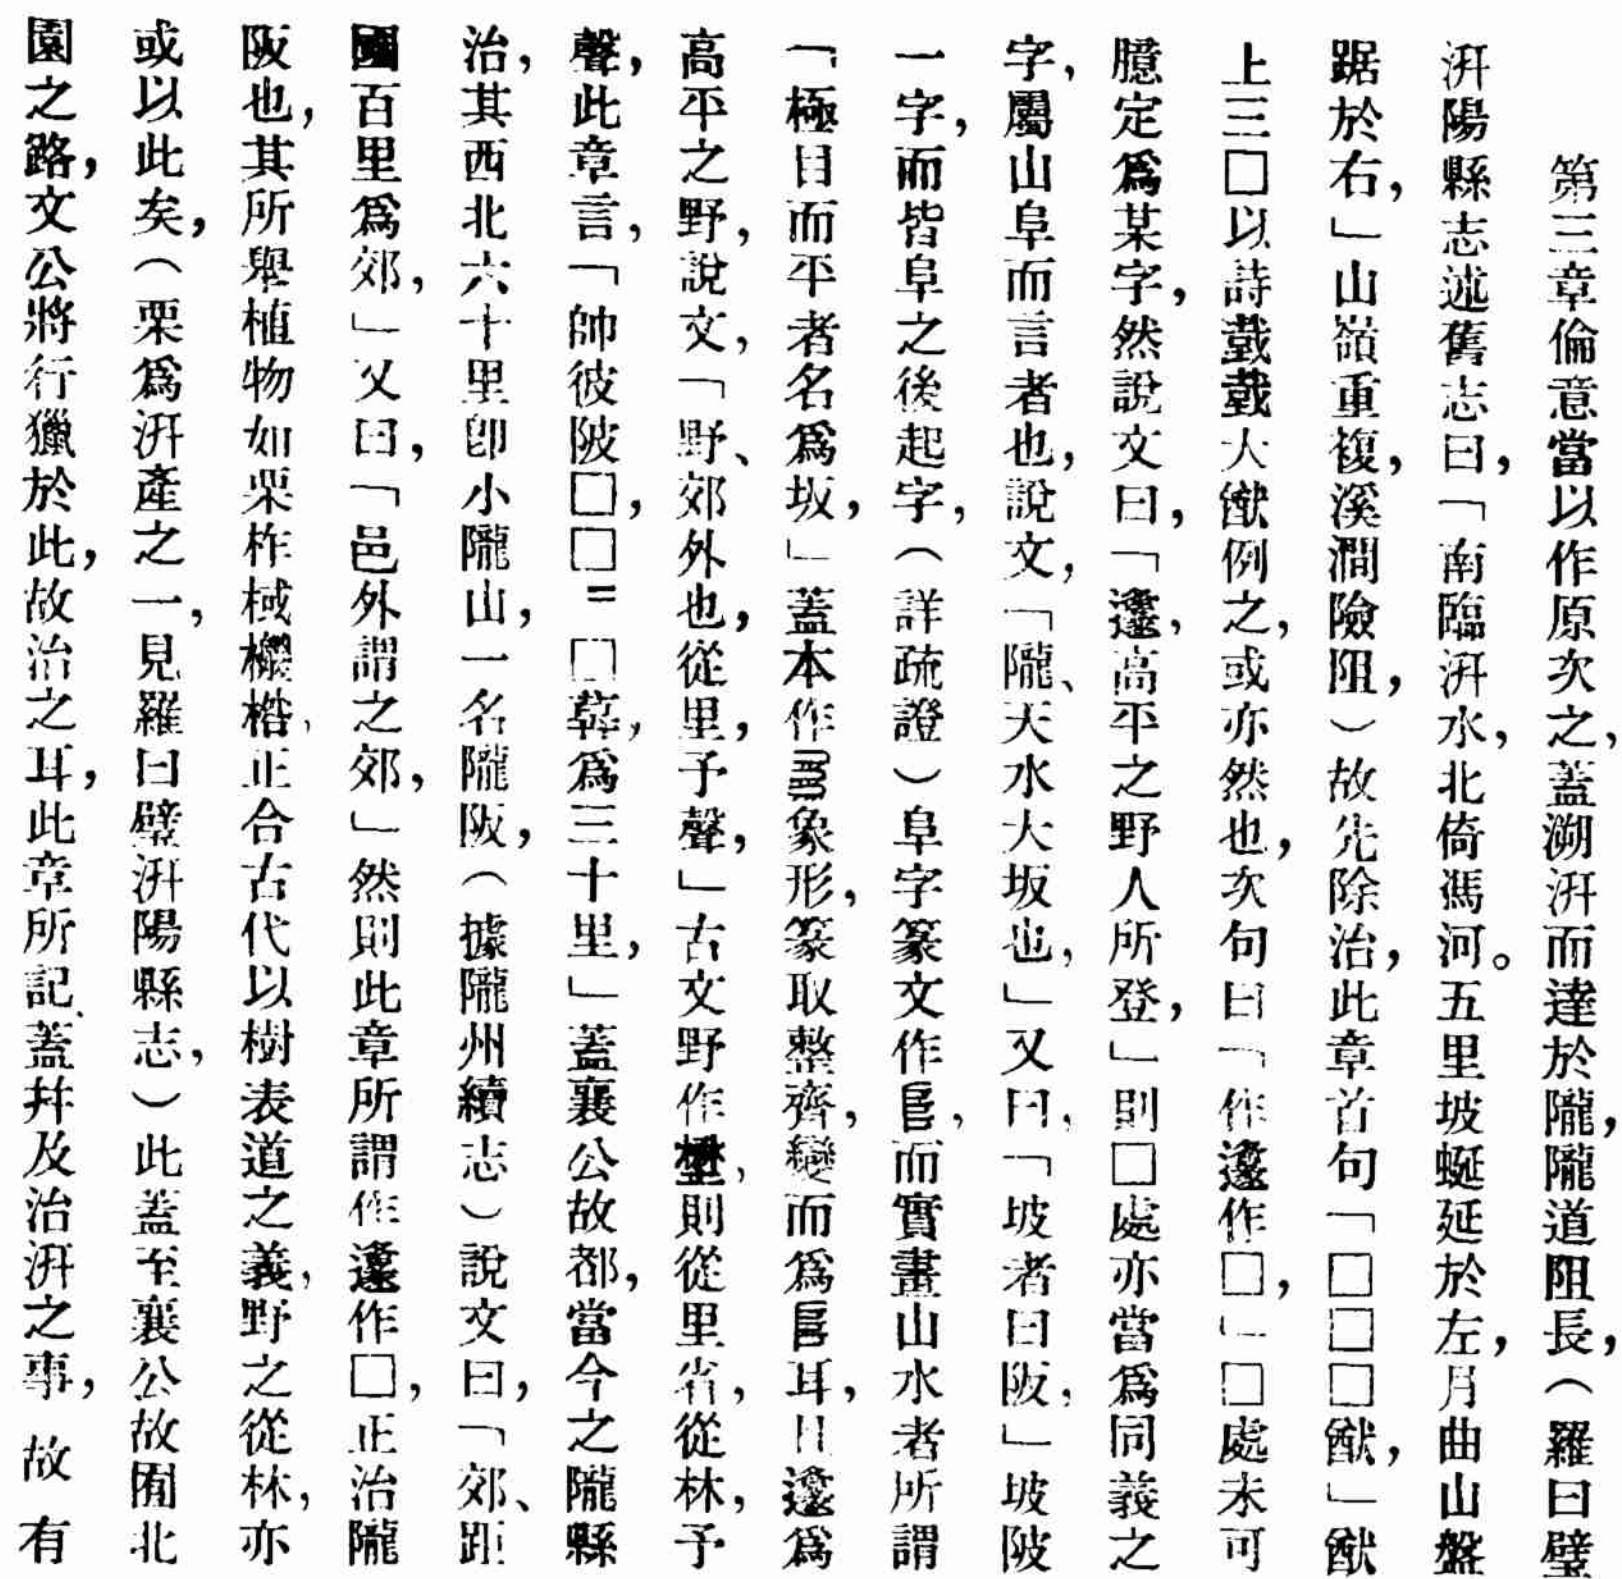 第三章倫意當以作原次之，蓋溯汧而達於隴，隴道阻長，（羅曰璧
汧陽縣志述舊志曰，「南臨汧水，北倚馮河。五里坡蜒延於左，月曲山盤
踞於右，」山嶺重複，溪澗險阻，）故先除治，此章首句「□□□猷，」猷
上三□以詩䟫䟫大猷例之，或亦然也，次句曰「作邍作□，」□處未可
臆定爲某字，然說文曰，「邍，高平之野人所登，」則□處亦當爲同義之
字，屬山阜而言者也，說文，「隴、天水大坂也，」又曰，「坡者曰阪，」坡陂
一字，而皆阜之後起字，（詳疏證）阜字篆文作𨸏，而實畫山水者所謂
「極目而平者名爲坂，」蓋本作象形，篆取整齊，變而爲𨸏耳，且邍爲
高平之野，說文，「野、郊外也，從里，予聲，」古文野作壄，則從里省，從林，予
聲，此章言，「帥彼陂□，□＝□𦾓，爲三十里，」蓋襄公故都，當今之隴縣
治，其西北六十里卽小隴山，一名隴阪，（據隴州續志）說文曰，「郊、距
國百里爲郊，」又曰，「邑外謂之郊，」然則此章所謂作邍作□，正治隴
阪也，其所舉植物如栗柞棫楊楛，正合古代以樹表道之義，野之從林，亦
或以此矣，（栗爲汧產之一，見羅曰璧汧陽縣志，）此蓋至襄公故囿北
園之路，文公將行獵於此，故治之耳，此章所記、蓋幷及治汧之事，故有